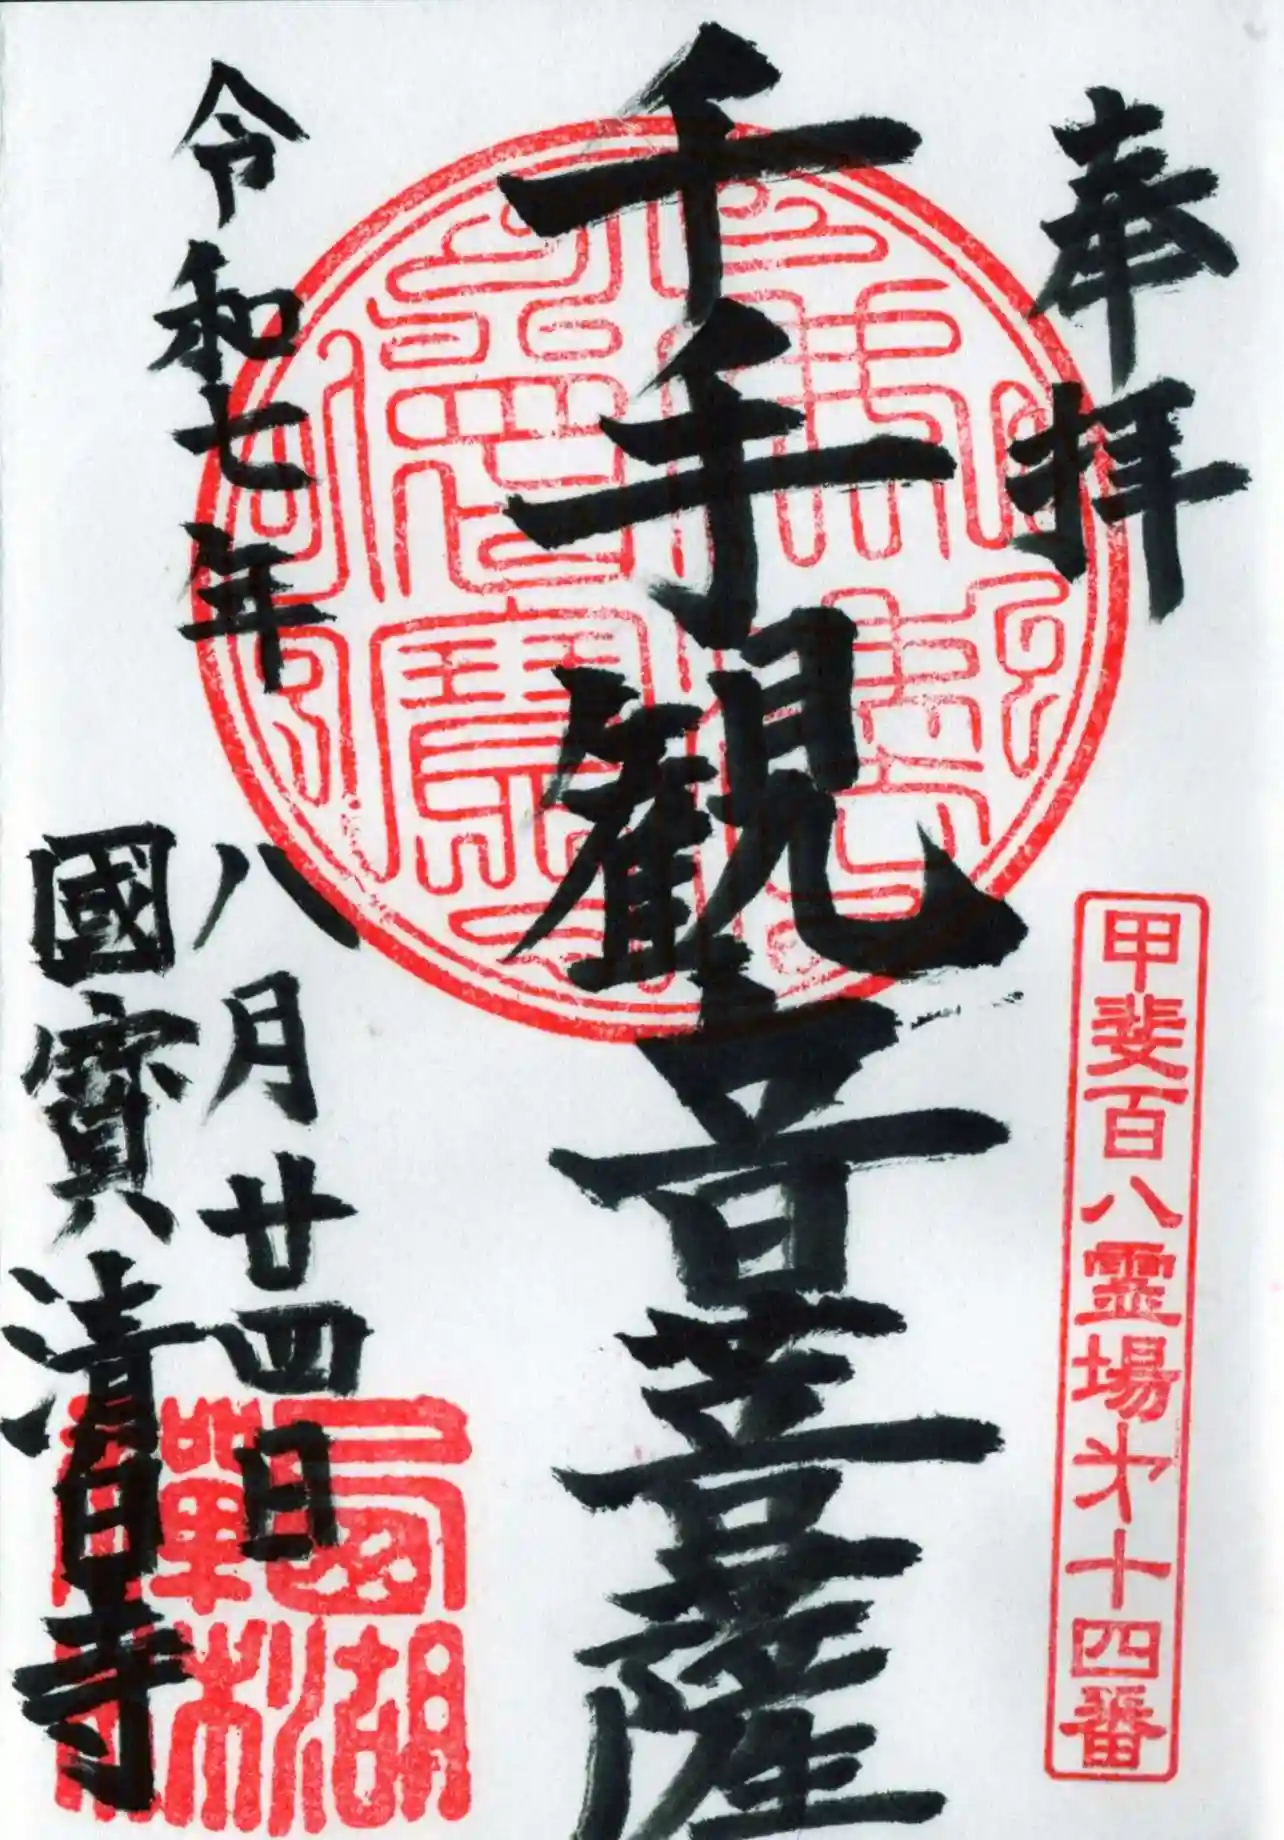 奉拝
甲斐百八霊場㐧十四番
千手観音菩薩
令和七年
八月廿四日
國寶清白寺